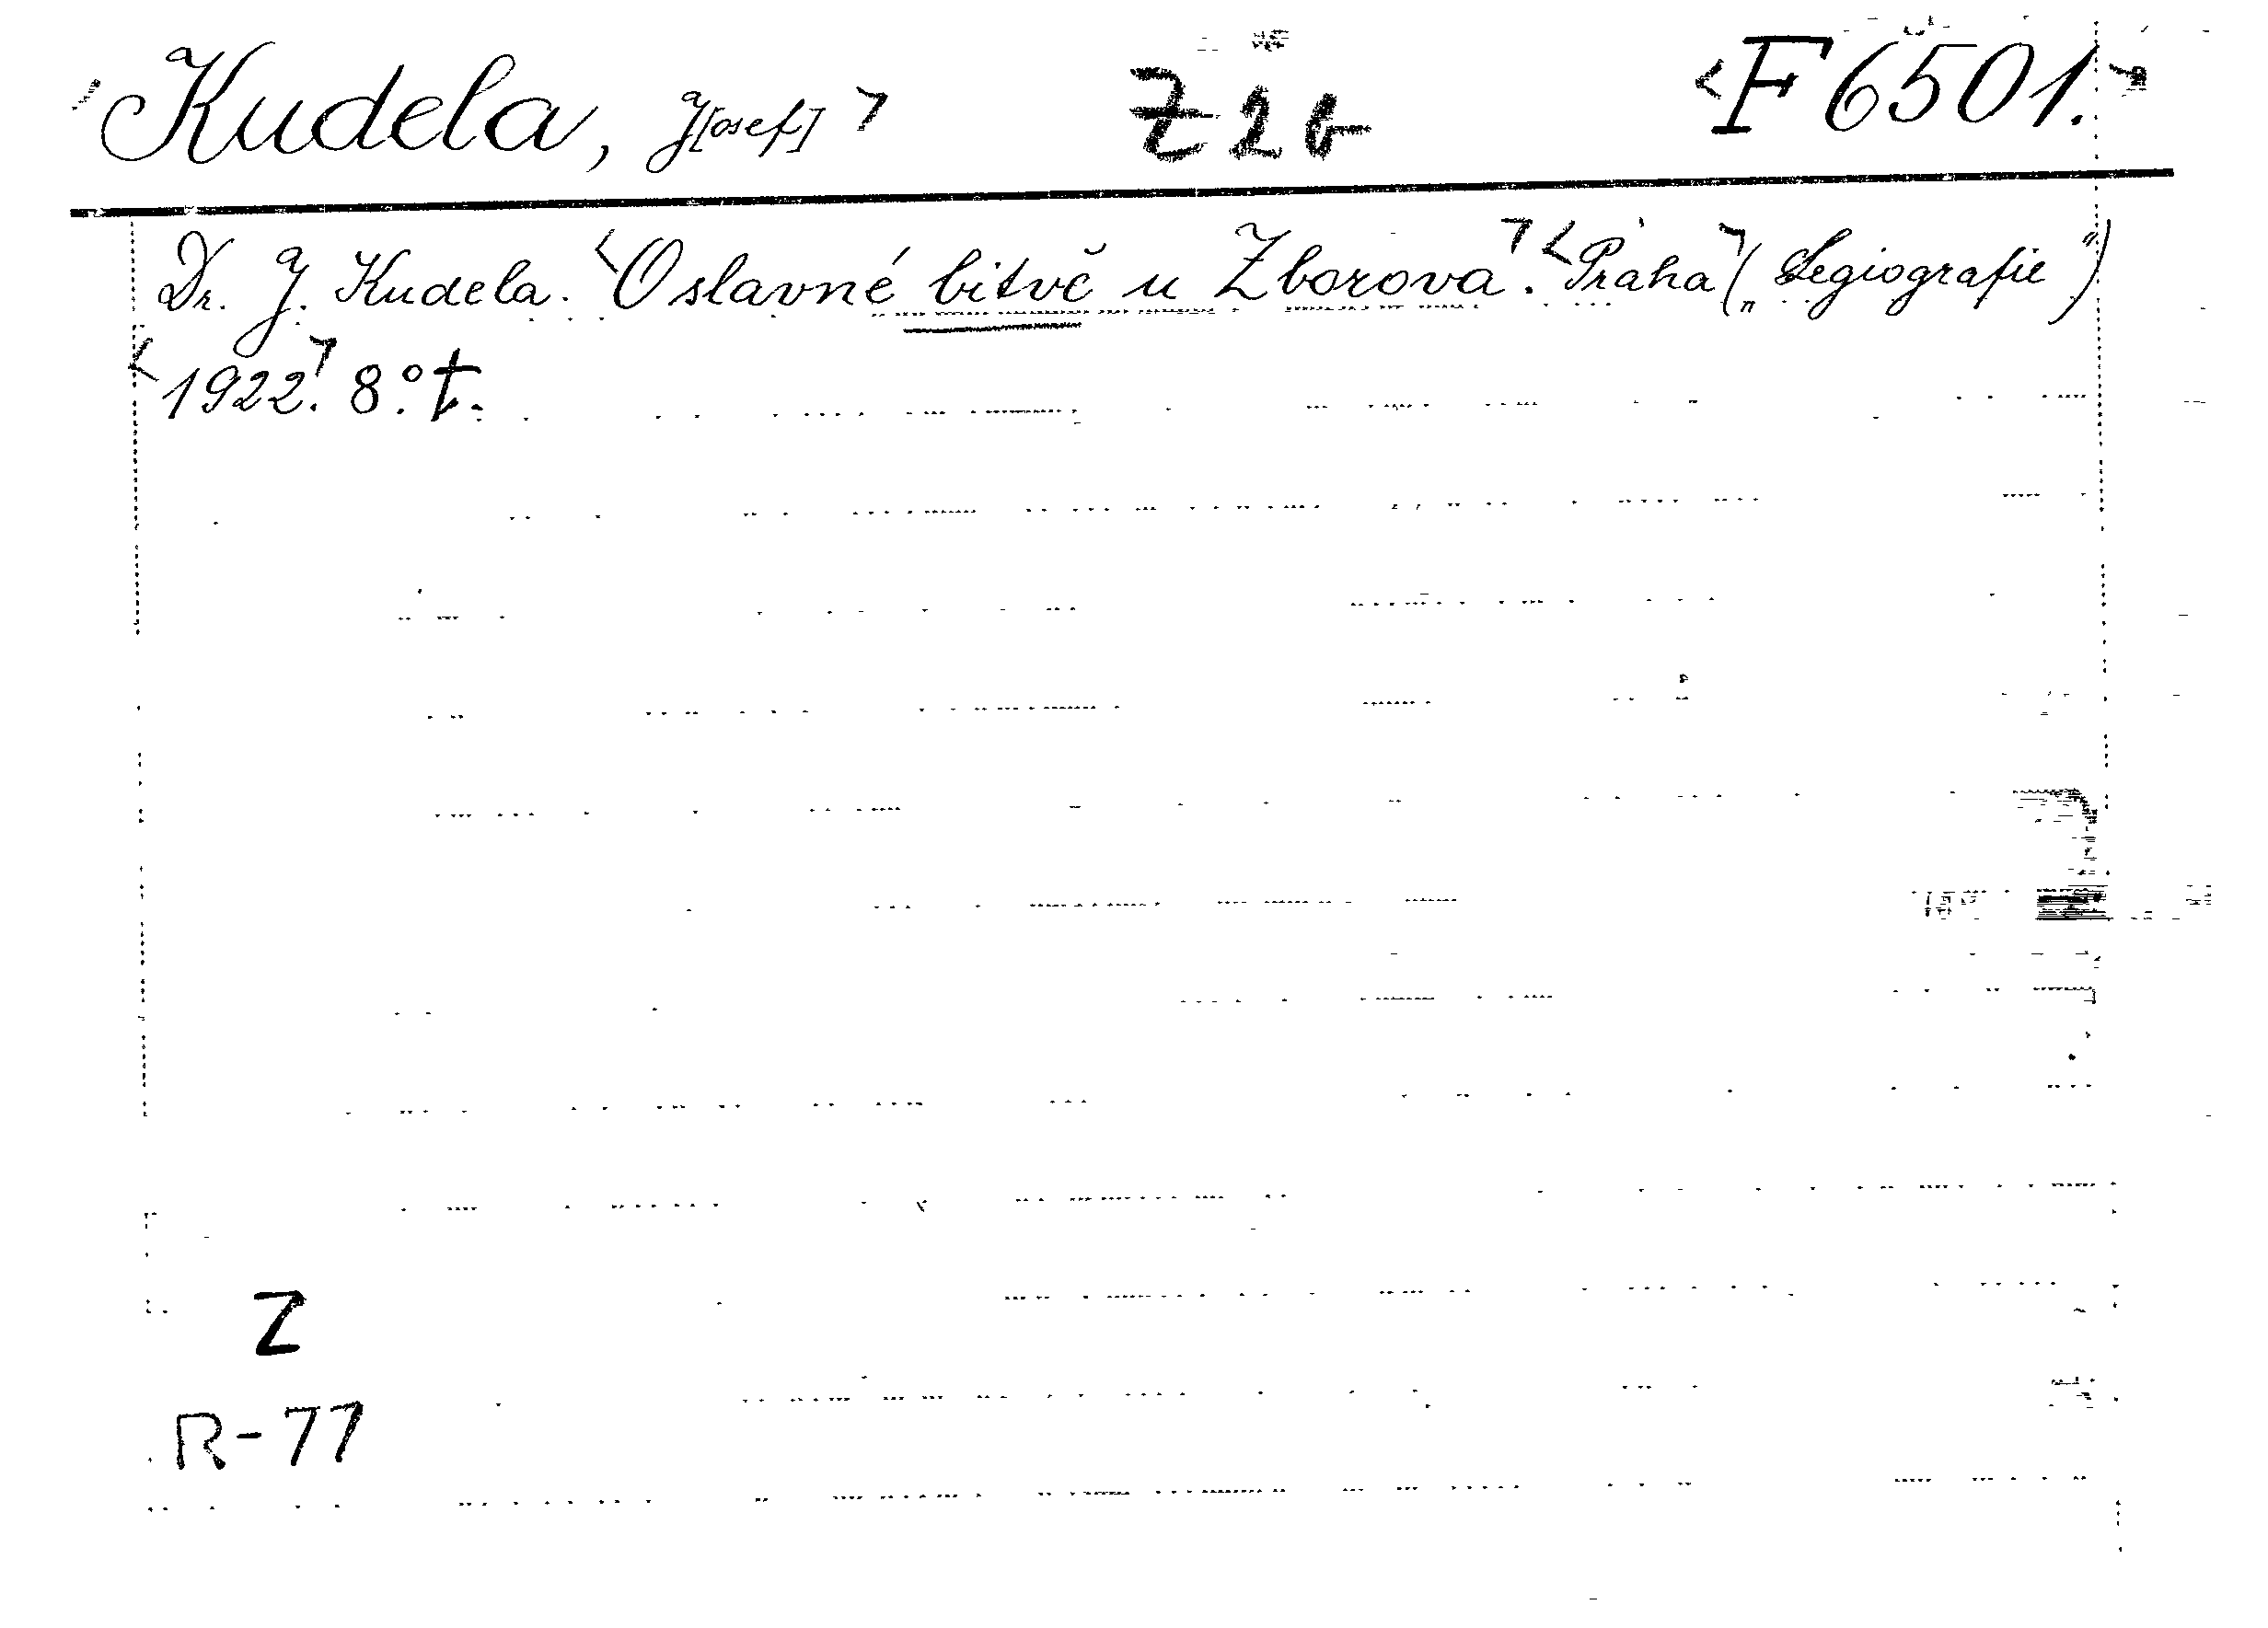 Kudela, J[osef] Z 2 b F 6501.
Dr. J. Kudela. O slavné bitvě u Zborova. Praha („Legiografie")
1922. 8.° t.
Z
R-77